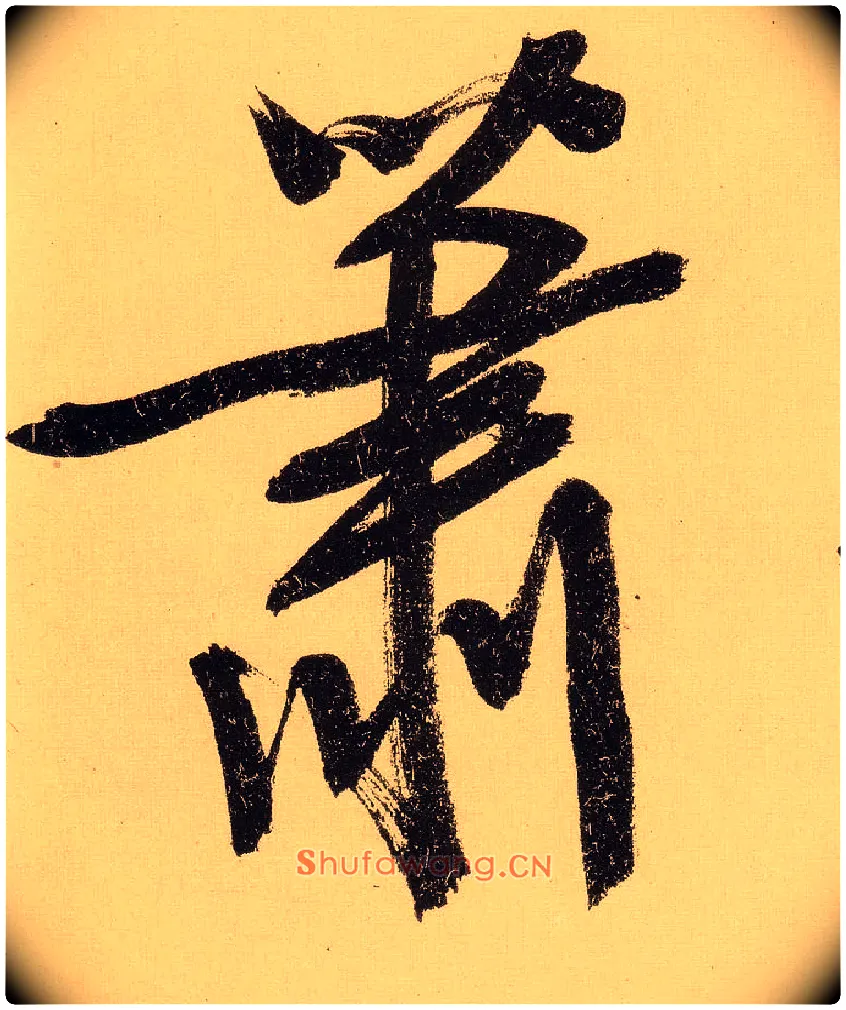 蕭
Shufawang.CN